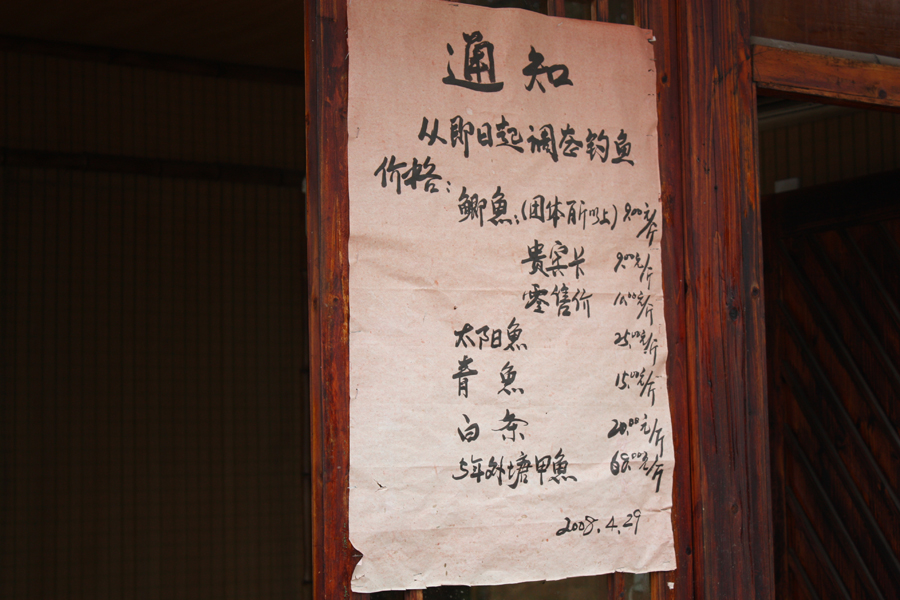 通知
从即日起调整钓鱼
价格:
鲫鱼:(团体百斤以上) 9.00元/斤
贵宾卡 9.00元/斤
零售价 11.00元/斤
太阳鱼 25.00元/斤
青鱼 15.00元/斤
白条 20.00元/斤
5年外塘甲鱼 68.00元/斤
2008.4.29